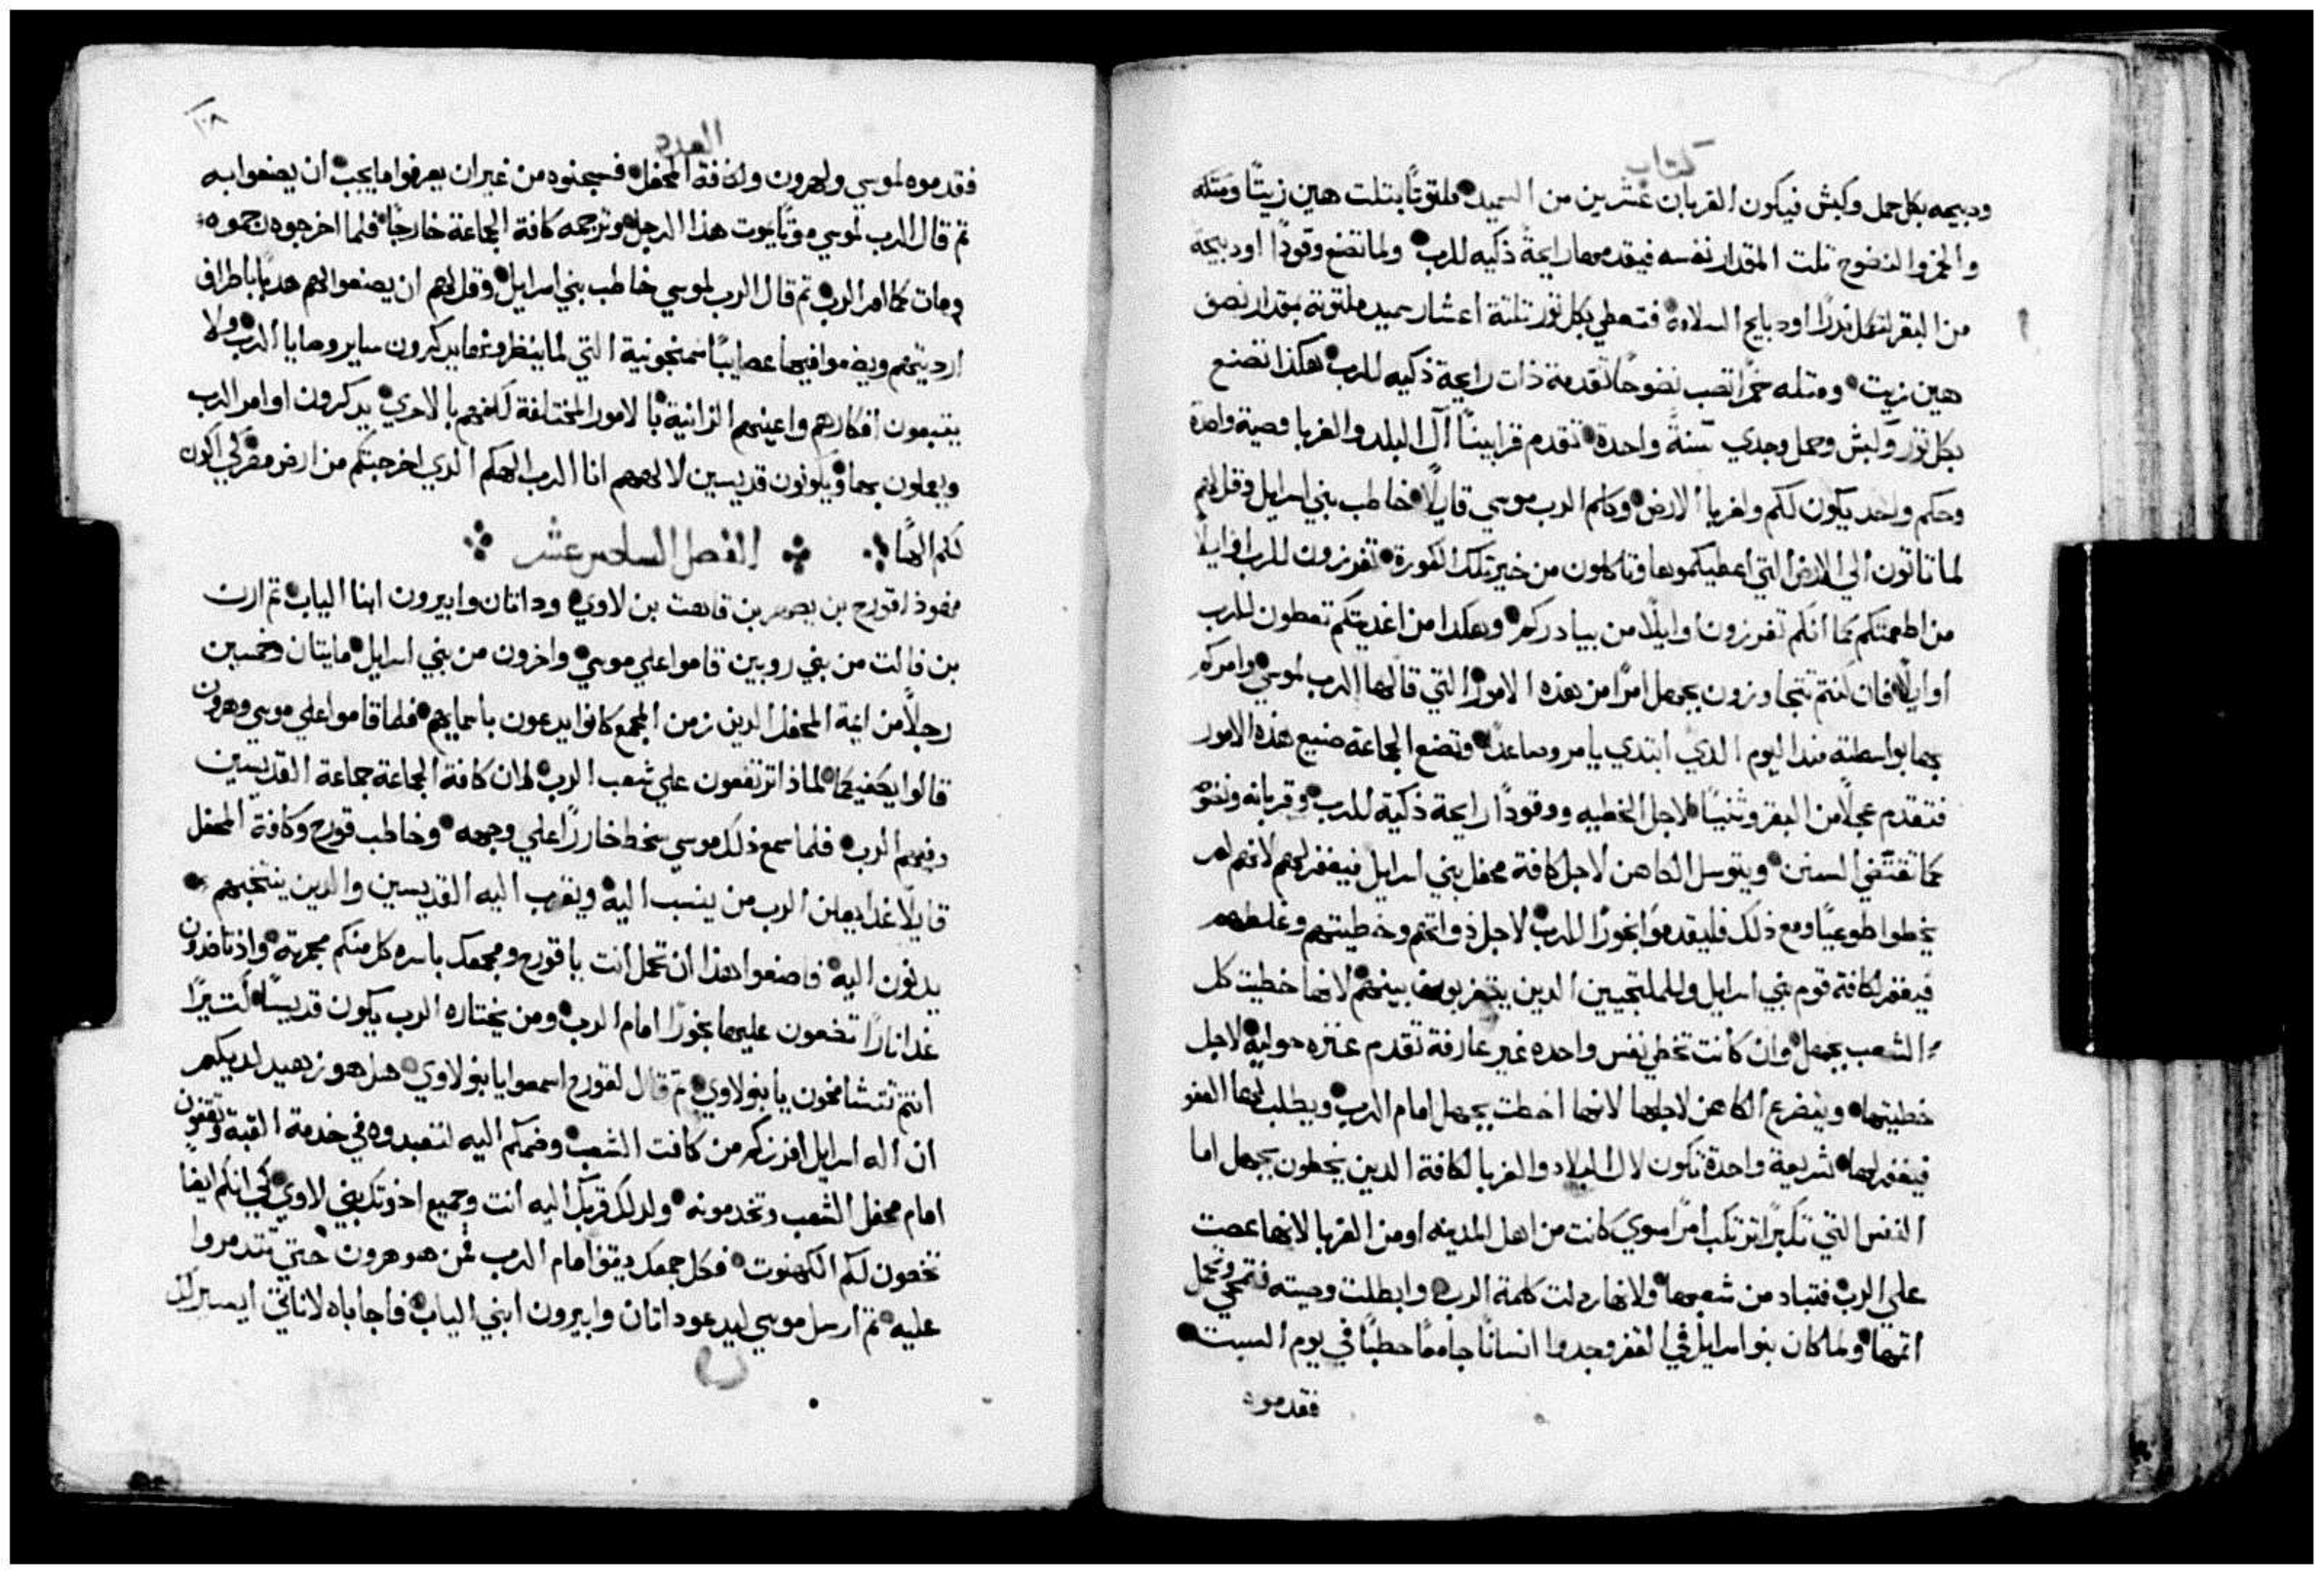 كتاب
ودبيحه بكل حمل وكبش فيكون القربان عشرين من السميد ملتوتًا بتلت هين زيتًا ومتله
والخمر النضوح تلت المقدار نفسه فيقدمها رايحة ذكيه للرب ولما تضع وقودًا او دبيحة
من البقر لتكمل ندرًا او دبايح السلامة فتعطي بكل تور تلتة اعشار سميد ملتوتة بمقدار نصف
هين زيت ومتله خمرًا تصب نضوحًا تقدمة ذات رايحة ذكيه للرب هكذا تصنع
بكل تور وكبش وحمل وجدي سنة واحدة تقدم قرابينًا آل البلد والغربا وصية واحدة
وحكم واحد يكون لكم ولغربا الارض وكلم الرب موسي قايلًا خاطب بني اسرايل وقل لهم
لما تاتون الي الارض التي اعطيكموها وتاكلون من خبز تلك الكورة تفرزون للرب اوايلًا
من اطعمتكم كما انكم تفرزون اوايلًا من بيادركم وهكدا من اغديتكم تعطون للرب
اوايلًا فان كنتم تتجاوزون بجهل امرًا من هذه الامور التي قالها الرب لموسي وامركم
بها بواسطته مند اليوم الدي ابتدي يامر وصاعدًا وتضع الجماعة صنيع هذه الامور
فتقدم عجلًا من البقر وثنيًا لاجل الخطيه ووقودًا رايحة ذكية للرب وقربانه ونضوحه
كما تقتضي السنن ويتوسل الكاهن لاجل كافة محفل بني اسرايل فيغفر لهم لانهم لم
يخطوا طوعيًا ومع ذلك فليقدموا بخورًا للرب لاجل ذواتهم وخطيتهم وغلطهم
فيغفر لكافة قوم بني اسرايل وللملتجيين الدين يتغربون بينهم لانها خطيت كل
الشعب بجهل وان كانت تخطي نفس واحده غير عارفة تقدم عنزه حولية لاجل
خطيتها ويتضرع الكاهن لاجلها لانها اخطت بجهل امام الرب ويطلب لها العفو
فيغفر لها شريعة واحدة تكون لال البلاد والغربا لكافة الدين يخطون بجهل اما
النفس التي تكبرًا ترتكب امرًا سوي كانت من اهل المدينه او من الغربا لانها عصت
علي الرب فتباد من شعبها ولانها ردلت كلمة الرب وابطلت وصيته فتمحي وتحمل
اتمها ولما كان بنو اسرايل في القفر وجدوا انسانًا جامعًا حطبًا في يوم السبت
فقدموه
العدد
١٠٨
فقدموه لموسي ولهرون ولكافة المحفل فسجنوه من غير ان يعرفوا ما يجب ان يصنعوا به
تم قال الرب لموسي موتًا يموت هذا الرجل وترجمه كافة الجماعة خارجًا فلما اخرجوه رجموه
ومات كما امر الرب تم قال الرب لموسي خاطب بني اسرايل وقل لهم ان يصنعوا لهم هدبًا باطراف
ارديتهم ويضموا فيها عصايبًا اسمنجونية التي لما ينظرونها يدكرون ساير وصايا الرب ولا
يتبعون افكارهم واعينهم الزانية بالامور المختلفة لكنهم بالاحري يدكرون اوامر الرب
ويعملون بها ويكونون قديسين لالههم انا الرب الهكم الدي اخرجتكم من ارض مصر لكي اكون
لكم الهًا
الفصل السادس عشر
فهوذا قورح بن يصهر بن قاهت بن لاوي وداتان وابيرون ابنا الياب تم اون
بن فالت من بني روبين قاموا علي موسي واخرون من بني اسرايل مايتان وخمسين
رجلًا من ايمة المحفل الدين زمن المجمع كانوا يدعون باسمايهم فلما قاموا علي موسي وهرون
قالوا يكفيكما لماذا ترتفعون علي شعب الرب لان كافة الجماعة جماعة القديسين
وفيهم الرب فلما سمع ذلك موسي سخط خارًا علي وجهه وخاطب قورح وكافة المحفل
قايلًا غدًا يعلن الرب من ينسب اليه ويقرب اليه القديسين والدين ينتخبهم
يدنون اليه فاصنعوا هذا ان تحمل انت يا قورح ومجمعك باسره كل منكم مجمرته واذ تاخدون
غدا نارًا تضعون عليها بخورًا امام الرب ومن يختاره الرب يكون قديسًا لتيرًا
انتم تتشامخون يا بنو لاوي تم قال لقورح اسمعوا يا بنو لاوي هل هو زهيد لديكم
ان اله اسرايل افرزكم من كافت الشعب وضمكم اليه لتعبدوه في خدمة القبة وتقفون
امام محفل الشعب وتخدمونه ولدلك قربك اليه انت وجميع اخوتك بني لاوي لكي انكم ايضًا
تخصون لكم الكهنوت فكل جمعك ويقف امام الرب فمن هو هرون حتي تتدمروا
عليه تم ارسل موسي ليدعو داتان وابيرون ابني الياب فاجاباه لا ناتي ايسير لك